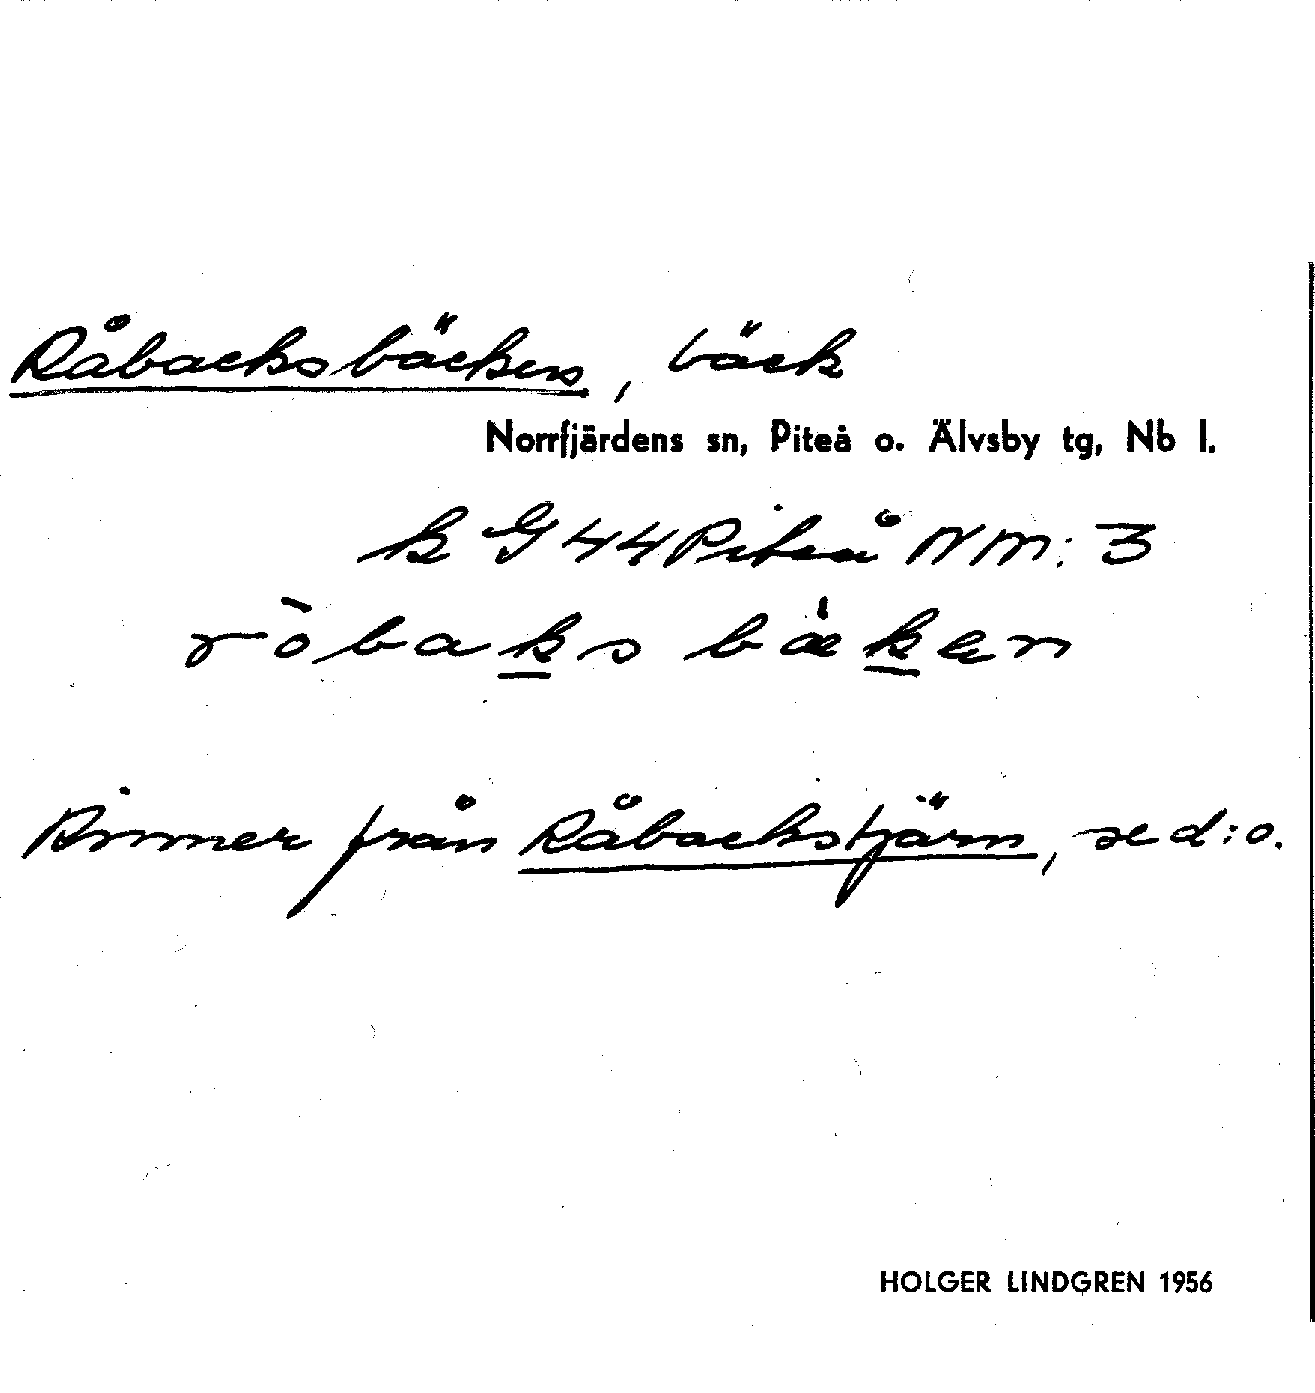 Råbacksbäcken, bäck
Norrfjärdens sn, Piteå o. Älvsby tg, Nb l.
k G 44 Piteå NM: 3
ròbaks bæken
Rinner från Råbackstjärn, se d:o.
HOLGER LINDGREN 1956